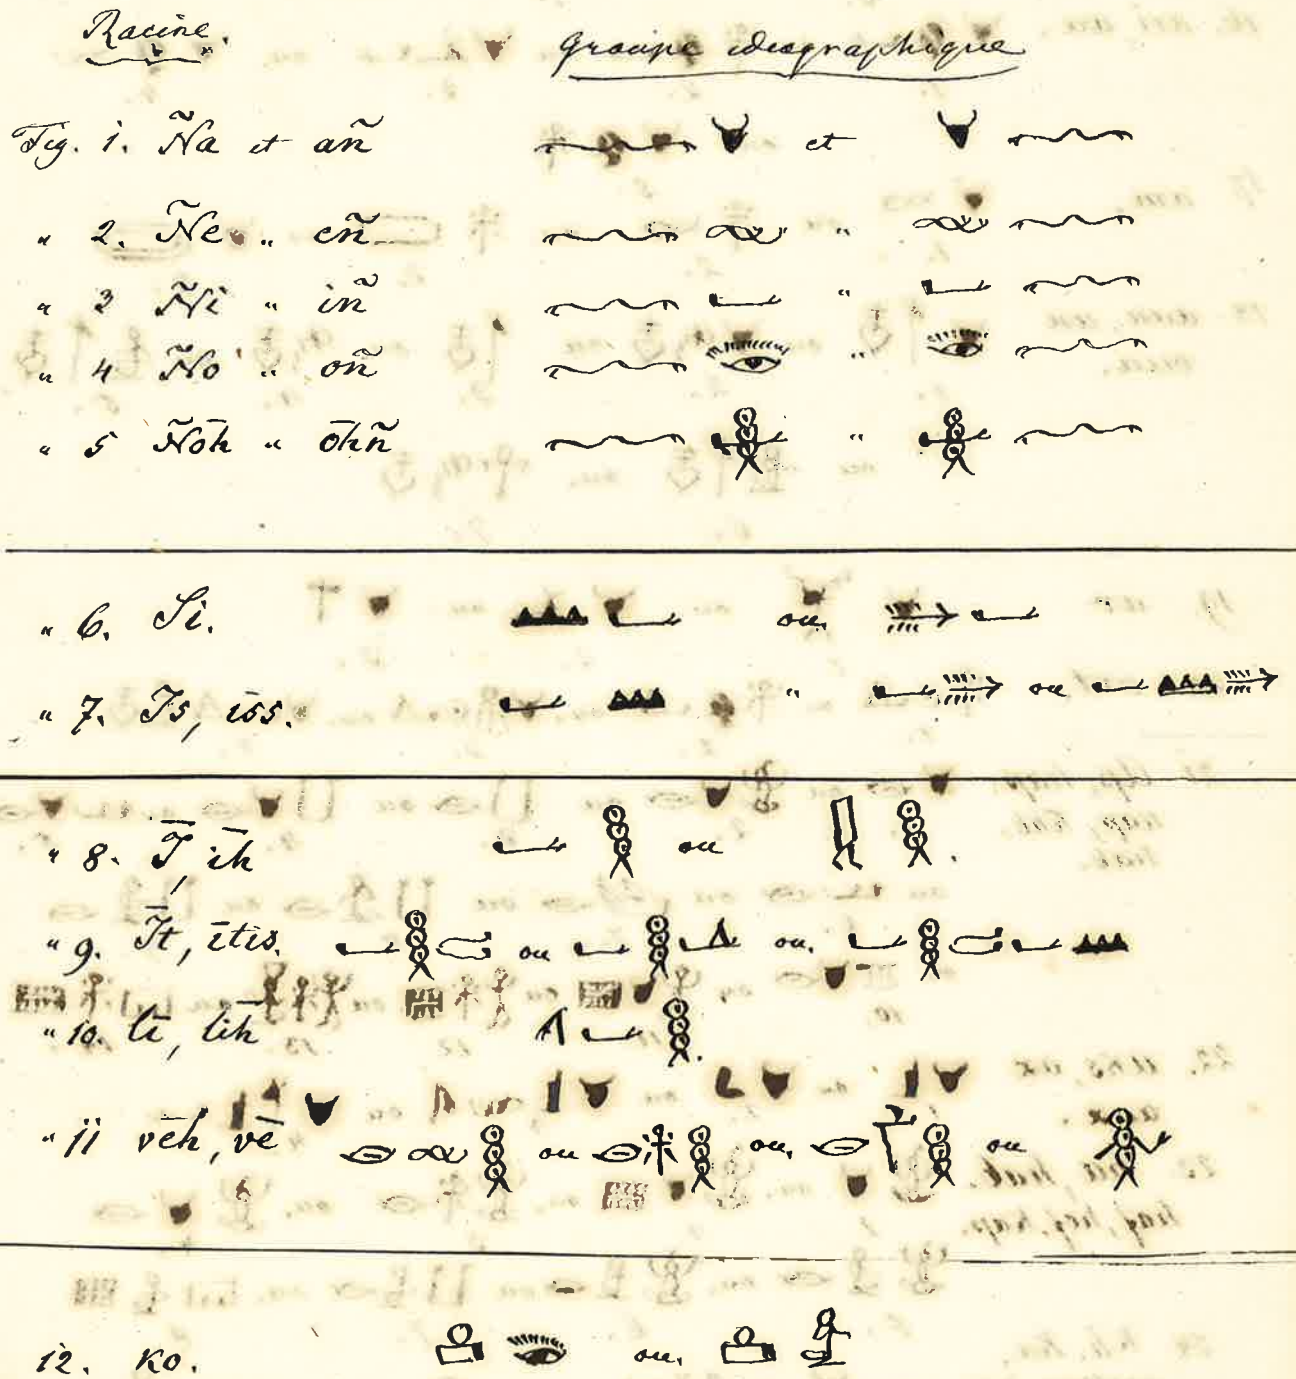 Racine. Groupe ideographique
Fig. 1. Ña et añ et
" 2. Ñe " eñ "
" 3 Ñi " iñ "
" 4 Ño " oñ "
" 5 Ñōh " ōhñ "
" 6. Si. ou.
" 7. Is, īss. " ou
" 8. Ī, īh ou
" 9. Īt, ītis. ou ou.
" 10. tī, tīh
" 11 vēh, vē ou ou, ou
12. Ko. ou.